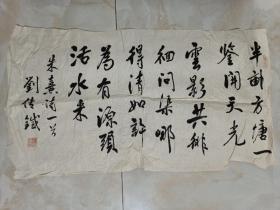 半畝方塘一
鑒開天光
雲影共徘
徊问渠哪
得清如許
為有源頭
活水来
朱熹詩一首
劉传鐵